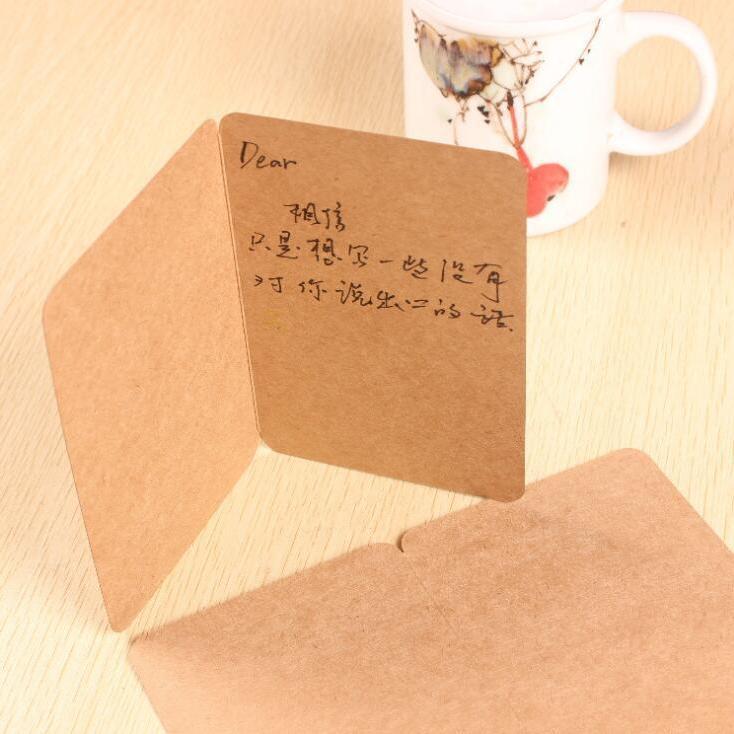 Dear
相信
只是想写一些没有
对你说出口的话.